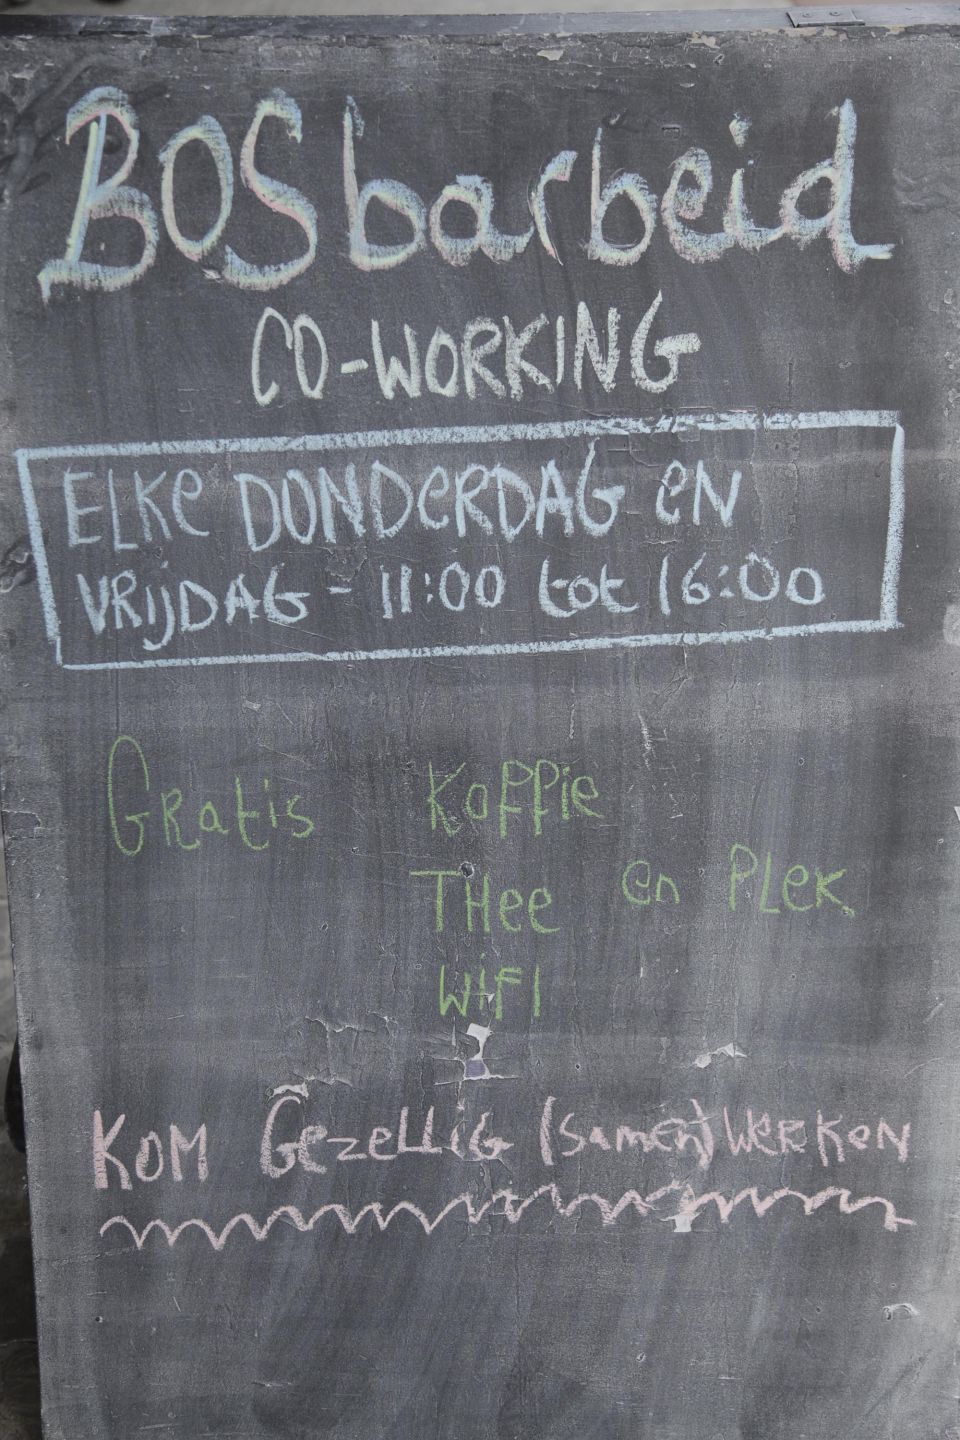 BOSbarbeid
CO-WORKING
ELKe DONDeRDAG eN
VRIJDAG - 11:00 tot 16:00
GRatis Koffie
THee en PLeK
WiFI
KOM GezeLLIG (samen)WeRKeN